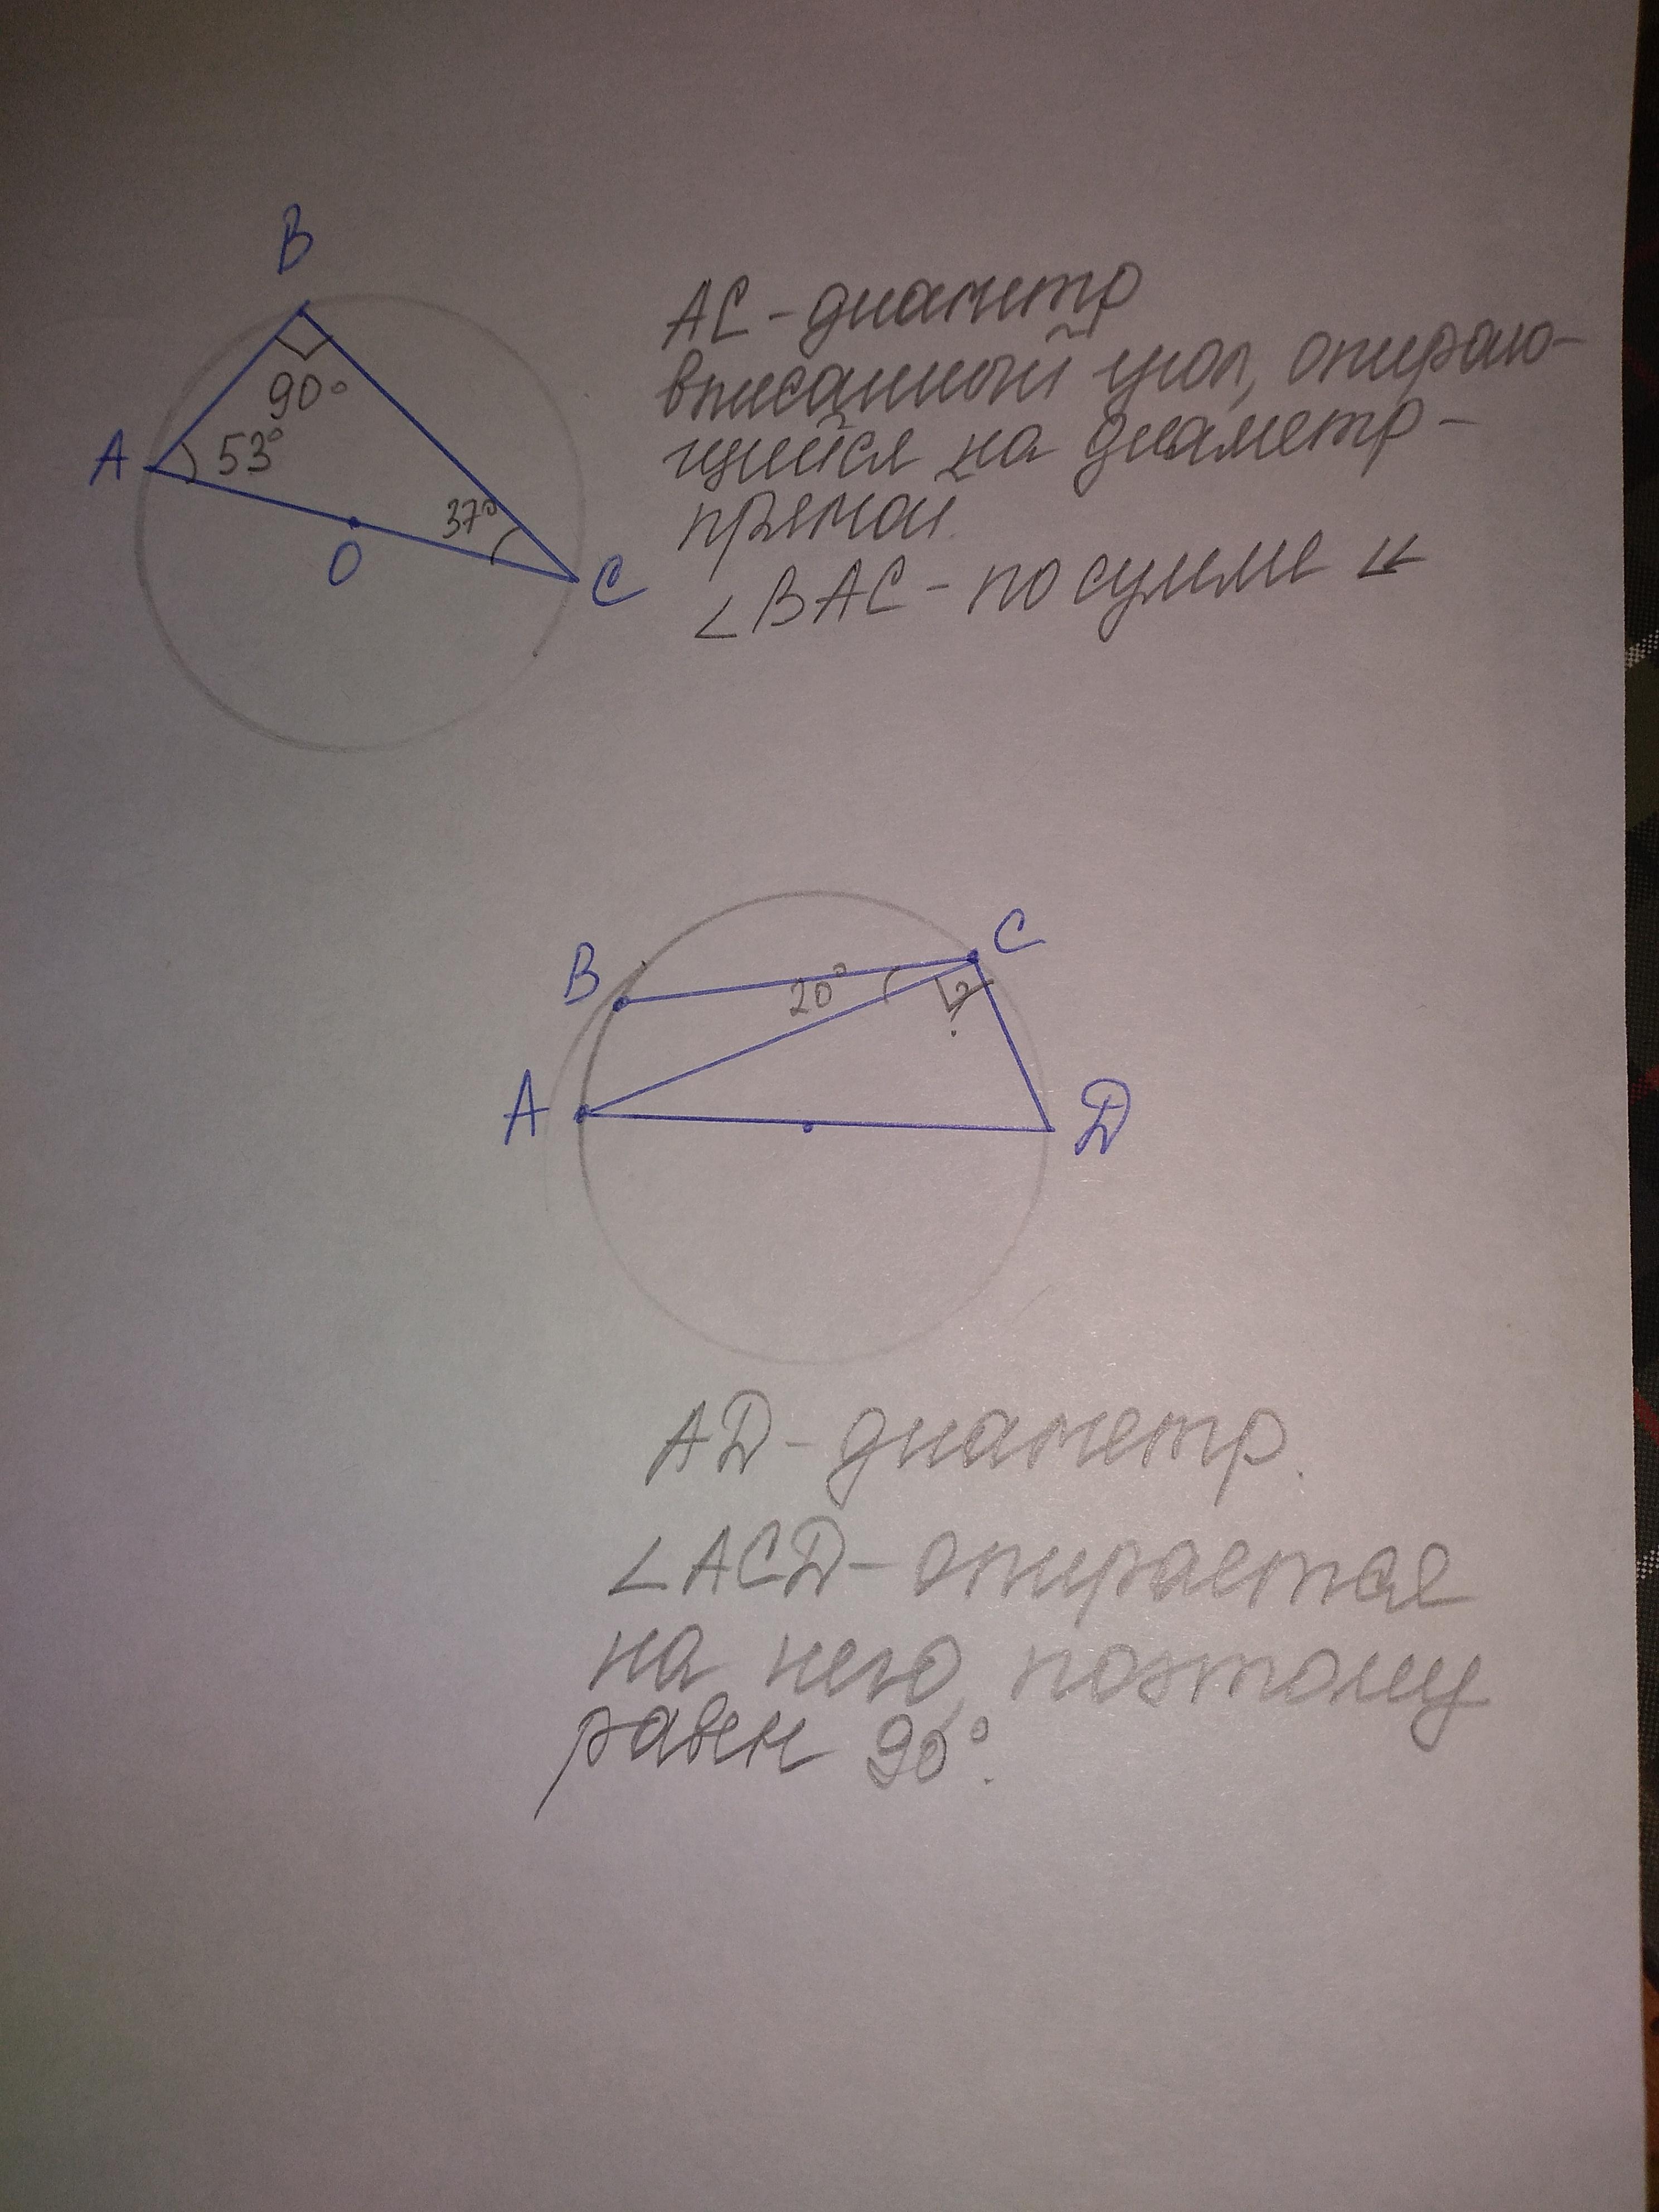 B
90°
A
53°
37°
O
C
AC - диаметр
вписанный угол, опираю-
щийся на диаметр -
прямой.
∠BAC - по сумме ∠∠
B
C
20°
?
A
D
AD - диаметр.
∠ACD - опирается
на него, поэтому
равен 90°.